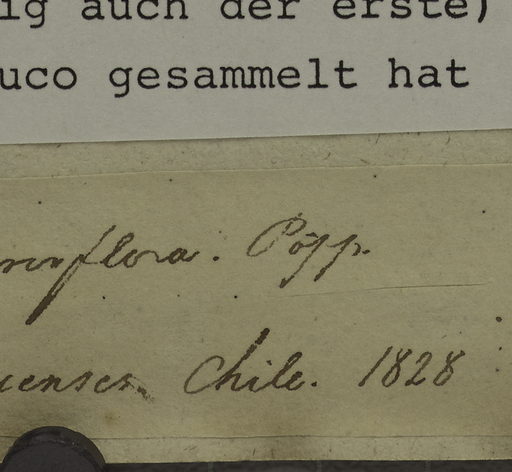 ig auch der erste)
uco gesammelt hat
flora. Pöpp.
censes. Chile. 1828